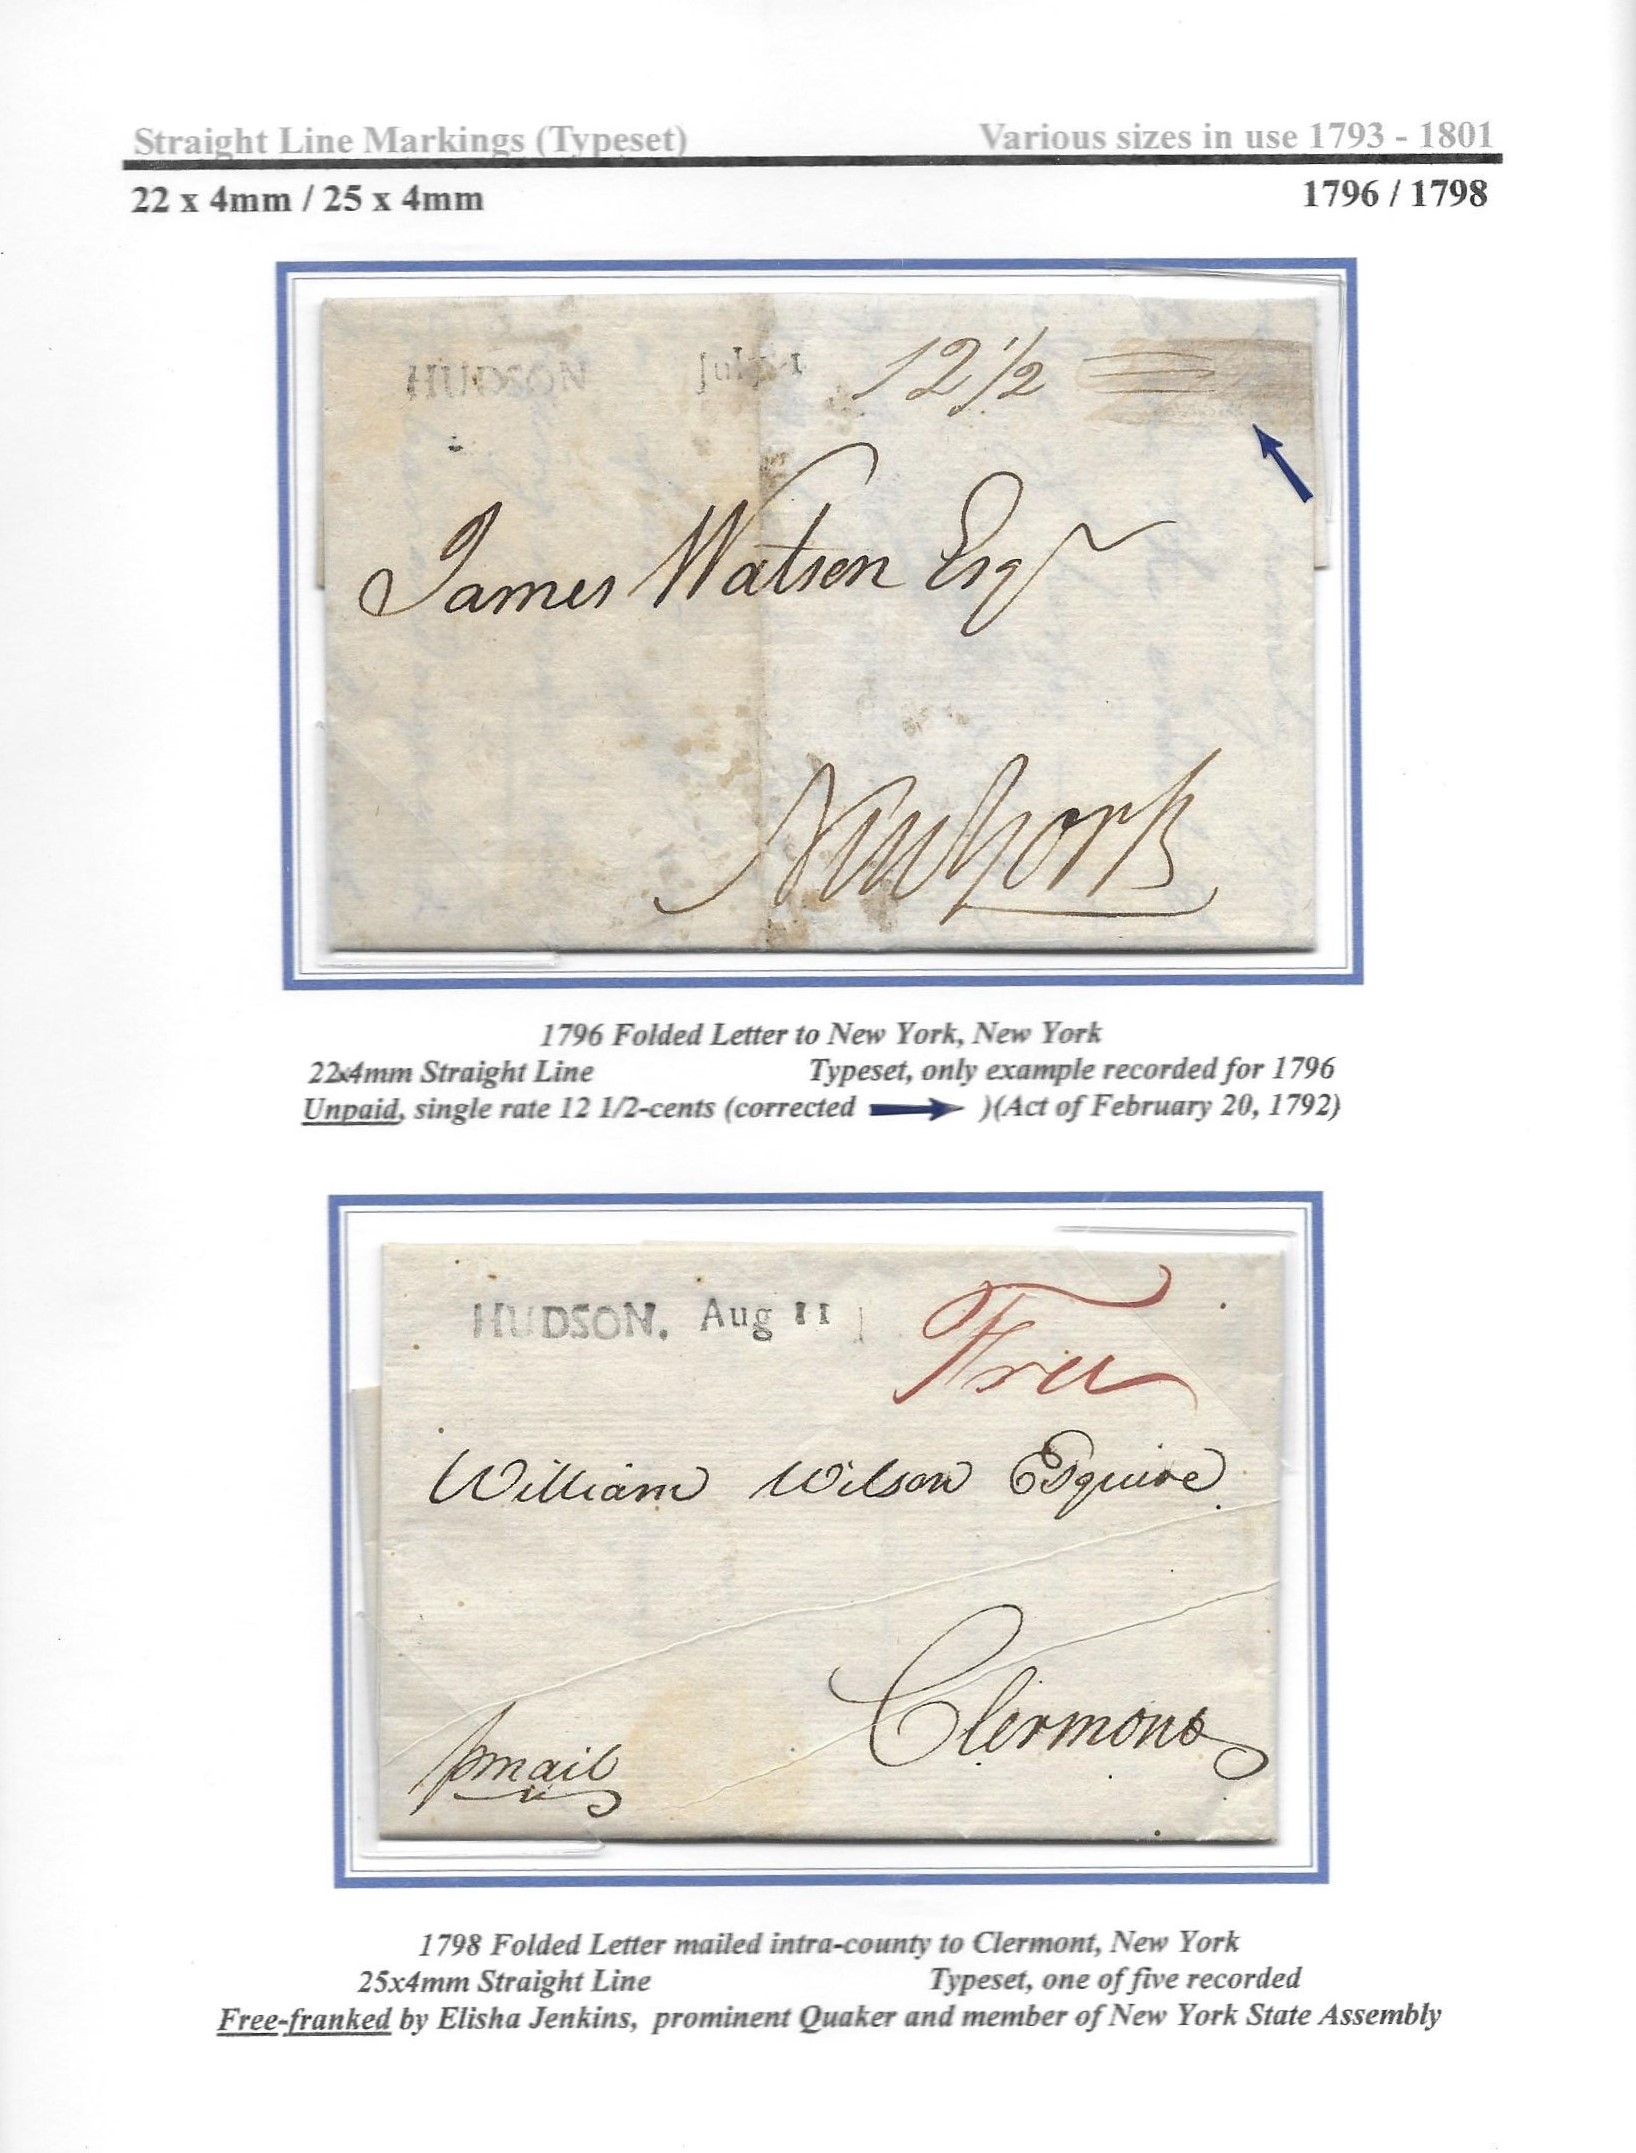 Straight Line Markings (Typeset) Various sizes in use 1793 - 1801
22 x 4mm / 25 x 4mm 1796 / 1798
HUDSON July 1 12 1/2
James Watson Esqr
New York
1796 Folded Letter to New York, New York
22x4mm Straight Line Typeset, only example recorded for 1796
Unpaid, single rate 12 1/2-cents (corrected )(Act of February 20, 1792)
HUDSON. Aug 11 Free
William Wilson Esquire
Clermont
pmail
1798 Folded Letter mailed intra-county to Clermont, New York
25x4mm Straight Line Typeset, one of five recorded
Free-franked by Elisha Jenkins, prominent Quaker and member of New York State Assembly